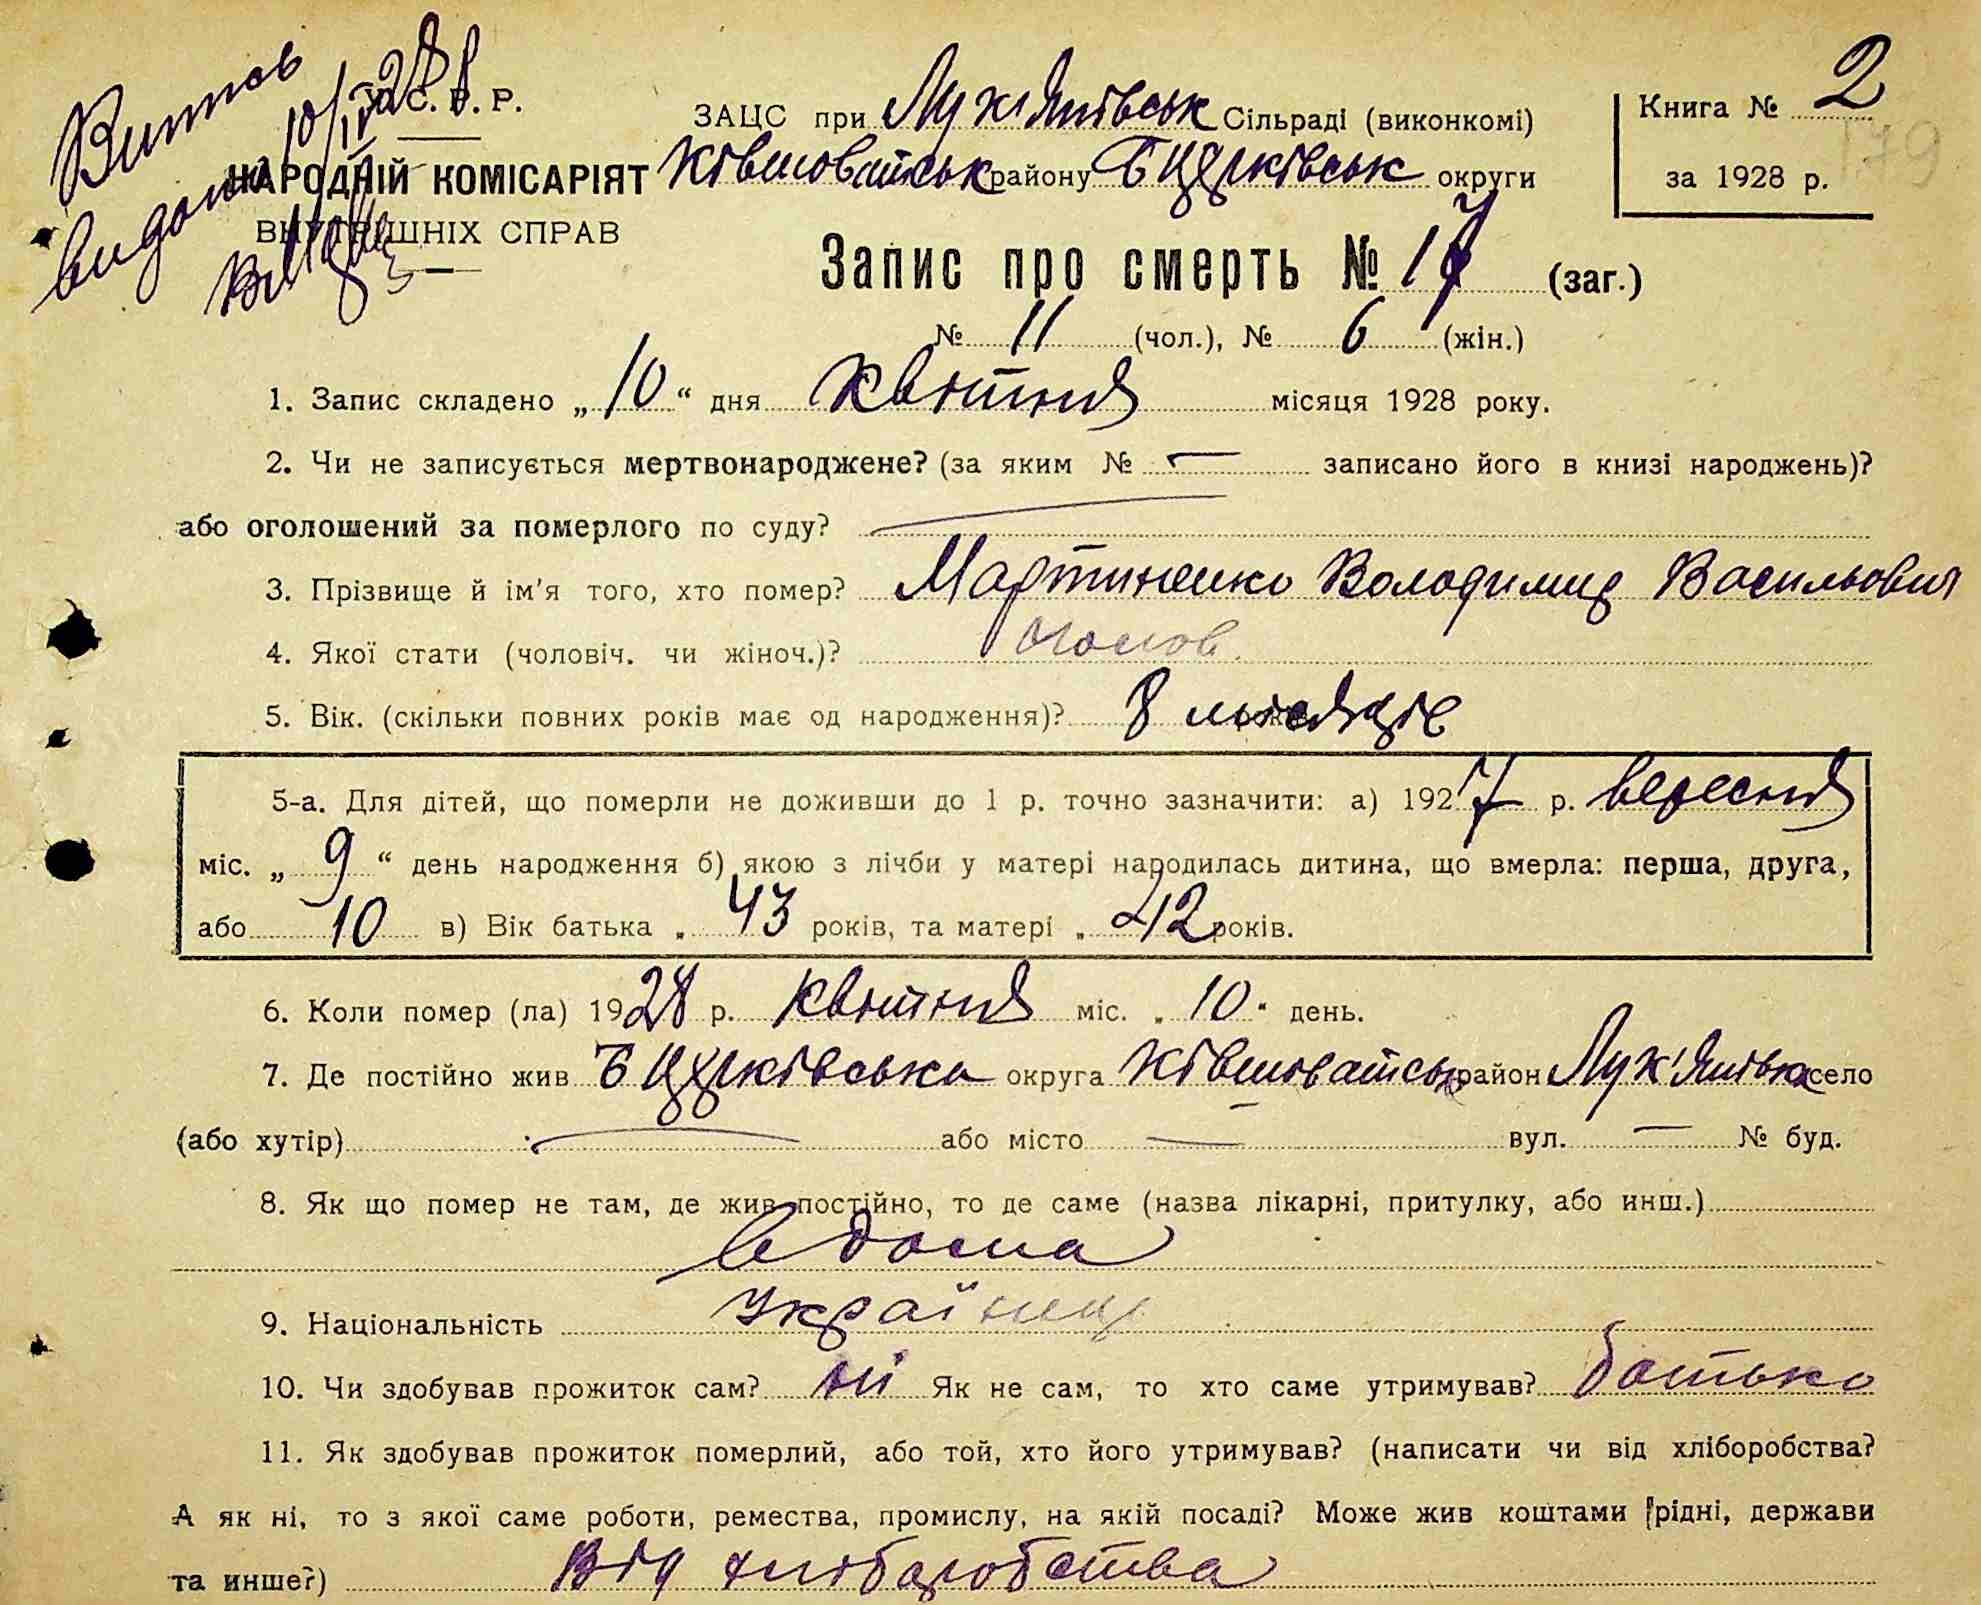 Витяг
видано 10/IV 28 р
У. С. Р. Р.
НАРОДНІЙ КОМІСАРІЯТ
ВНУТРІШНІХ СПРАВ
ЗАЦС при Лук'янівськ Сільраді (виконкомі)
Ківшоватськ району Б Церківськ округи
Книга № 2
за 1928 р.
179
Запис про смерть № 17 (заг.)
№ 11 (чол.), № 6 (жін.)
1. Запис складено „ 10 “ дня квітня місяця 1928 року.
2. Чи не записується мертвонароджене? (за яким № — записано його в книзі народжень)?
або оголошений за померлого по суду? —
3. Прізвище й ім'я того, хто помер? Мартиненко Володимир Васильович
4. Якої стати (чоловіч. чи жіноч.)? чолов.
5. Вік. (скільки повних років має од народження)? 8 місяців
5-а. Для дітей, що померли не доживши до 1 р. точно зазначити: а) 1927 р. вересня
міс. „ 9 “ день народження б) якою з лічби у матері народилась дитина, що вмерла: перша, друга,
або 10 в) Вік батька „ 43 років, та матері „ 42 років.
6. Коли помер (ла) 1928 р. квітня міс. „ 10 “ день.
7. Де постійно жив Б Церківська округа Ківшоватськ район Лук'янівка село
(або хутір) — або місто — вул. — № буд.
8. Як що помер не там, де жив постійно, то де саме (назва лікарні, притулку, або инш.)
вдома
9. Національність українець
10. Чи здобував прожиток сам? ні Як не сам, то хто саме утримував? батько
11. Як здобував прожиток померлий, або той, хто його утримував? (написати чи від хліборобства?
А як ні, то з якої саме роботи, ремества, промислу, на якій посаді? Може жив коштами рідні, держави
та инше?) Від хліборобства